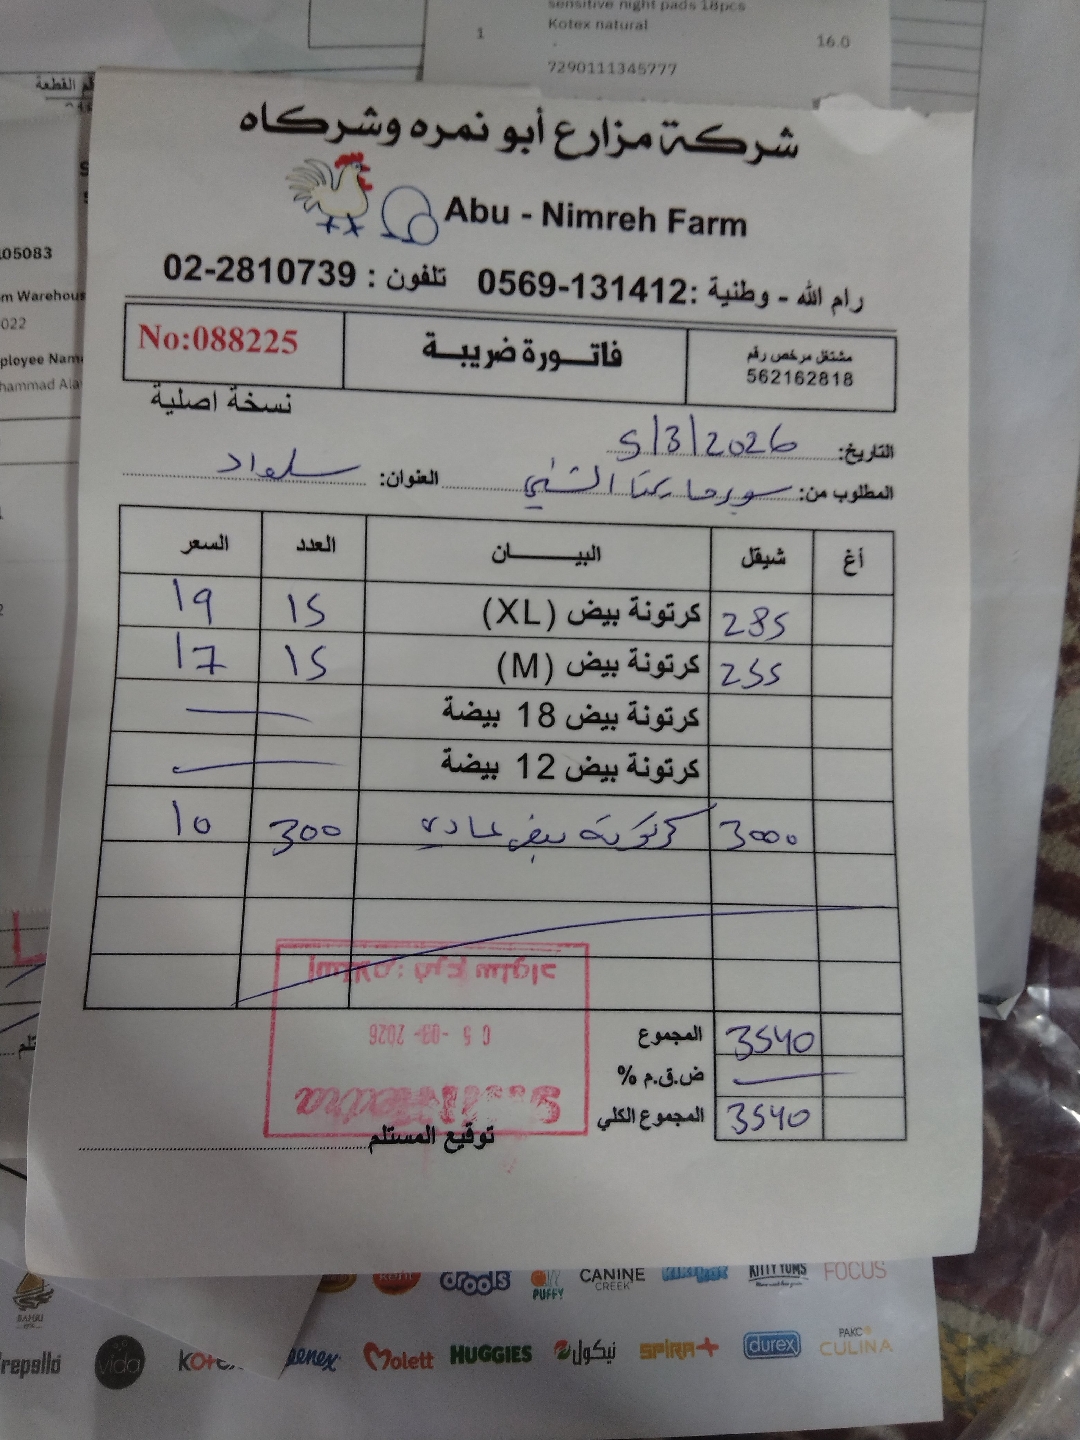 sensitive night pads 18pcs
Kotex natural
1
16.0
7290111345777
م القطعة
شركة مزارع أبو نمره وشركاه
Abu - Nimreh Farm
رام الله - وطنية :0569-131412 تلفون : 02-2810739
مشتغل مرخص رقم
562162818
فاتورة ضريبة
No:088225
نسخة اصلية
التاريخ: 5/3/2026
المطلوب من: سوبر ماركت الشني العنوان: سلواد
أغ شيقل البيان العدد السعر
285 كرتونة بيض (XL) 15 19
255 كرتونة بيض (M) 15 17
كرتونة بيض 18 بيضة
كرتونة بيض 12 بيضة
3000 كرتونة بيض عادي 300 10
المجموع 3540
ض.ق.م %
المجموع الكلي 3540
توقيع المستلم
استلام: فرع سلواد
05-03-2026
105083
om Warehous
022
ployee Nam
hammad Ala
drools
PUFFY
CANINE
CREEK
KITTY YUMS
FOCUS
repallo
vida
Kotex
Molett
HUGGIES
نيكول
SPIRA+
durex
PAKC
CULINA